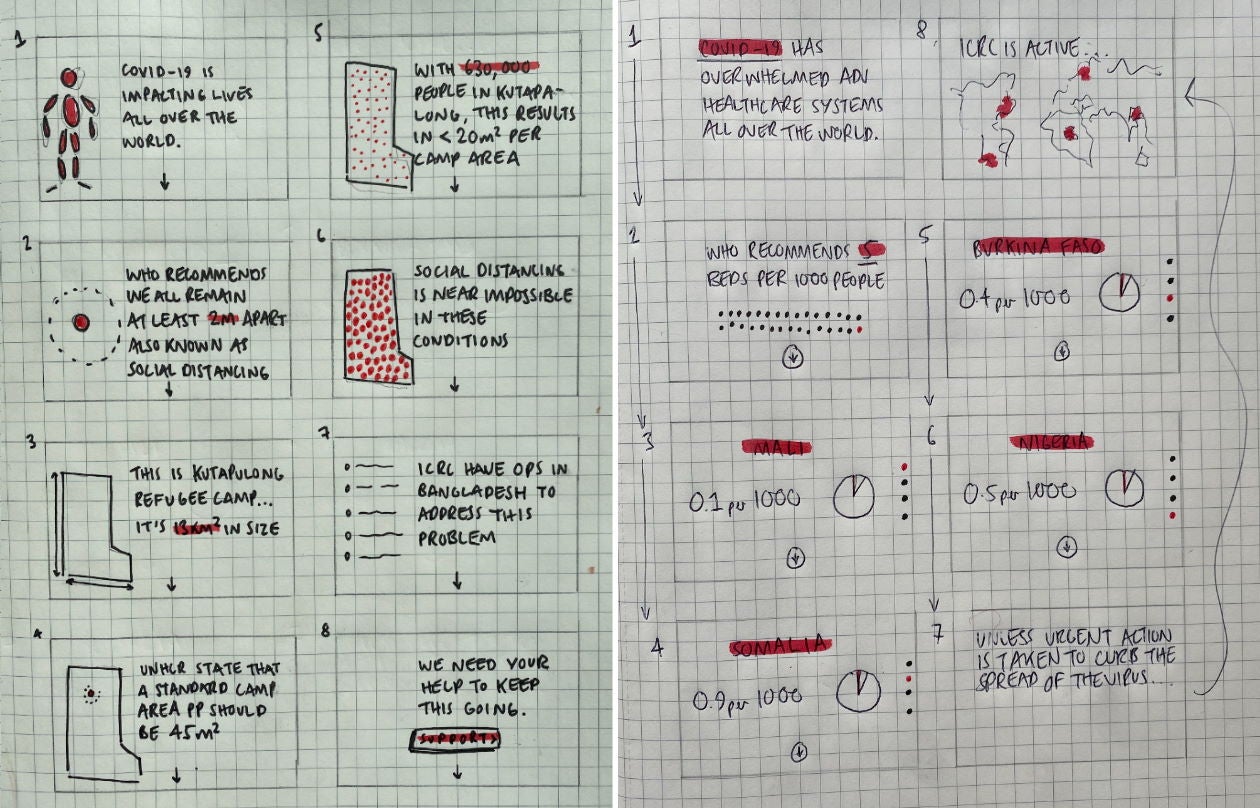 1
COVID-19 IS
IMPACTING LIVES
ALL OVER THE
WORLD.
2
WHO RECOMMENDS
WE ALL REMAIN
AT LEAST 2M APART
ALSO KNOWN AS
SOCIAL DISTANCING
3
THIS IS KUTAPULONG
REFUGEE CAMP...
IT'S 13KM² IN SIZE
4
UNHCR STATE THAT
A STANDARD CAMP
AREA PP SHOULD
BE 45M²
5
WITH 630,000
PEOPLE IN KUTAPA-
LONG, THIS RESULTS
IN < 20M² PER
CAMP AREA
6
SOCIAL DISTANCING
IS NEAR IMPOSSIBLE
IN THESE
CONDITIONS
7
ICRC HAVE OPS IN
BANGLADESH TO
ADDRESS THIS
PROBLEM
8
WE NEED YOUR
HELP TO KEEP
THIS GOING.
SUPPORT >
1
COVID-19 HAS
OVERWHELMED ADV
HEALTHCARE SYSTEMS
ALL OVER THE WORLD.
2
WHO RECOMMENDS 5
BEDS PER 1000 PEOPLE
3
MALI
0.1 per 1000
4
SOMALIA
0.9 per 1000
5
BURKINA FASO
0.4 per 1000
6
NIGERIA
0.5 per 1000
7
UNLESS URGENT ACTION
IS TAKEN TO CURB THE
SPREAD OF THE VIRUS....
8.
ICRC IS ACTIVE...